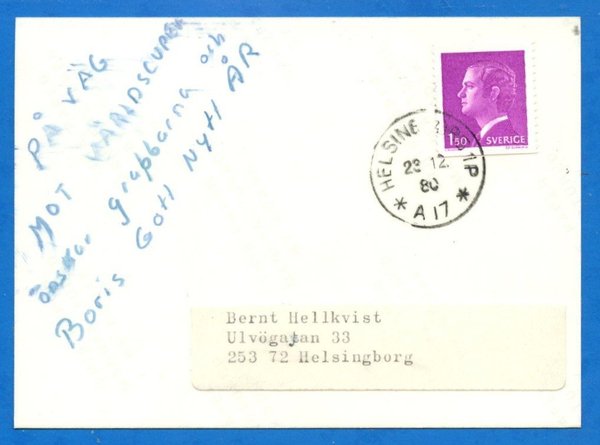 PÅ VÄG
MOT VÄRLDSCUPEN
önskar grabbarna och
Boris Gott Nytt ÅR
1.50 SVERIGE
HELSINGBORG 1P
23 12 80
* A 17 *
Bernt Hellkvist
Ulvögatan 33
253 72 Helsingborg